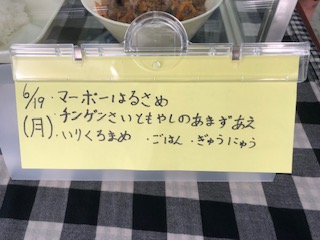 6/19 ・マーボーはるさめ
(月)・チンゲンさいともやしのあまずあえ
・いりくろまめ ・ごはん ・ぎゅうにゅう